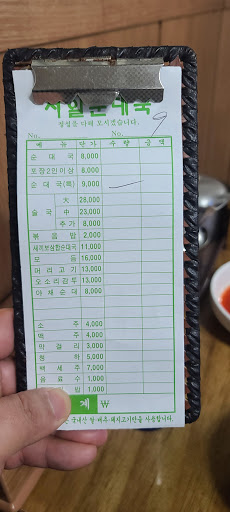 서일순대국
정성을 다해 모시겠습니다.
No. No. 9
메뉴 단가 수량 금액
순대국 8,000
포장2인이상 8,000
순대국(특) 9,000
大 28,000
술국 中 23,000
추가 8,000
볶음밥 2,000
새끼보삼합순대국 11,000
모듬 16,000
머리고기 13,000
오소리감투 13,000
야채순대 8,000
소주 4,000
맥주 4,000
막걸리 3,000
청하 5,000
백세주 7,000
음료수 1,000
1,000
계 ₩
국내산 쌀·배추·돼지고기만을 사용합니다.